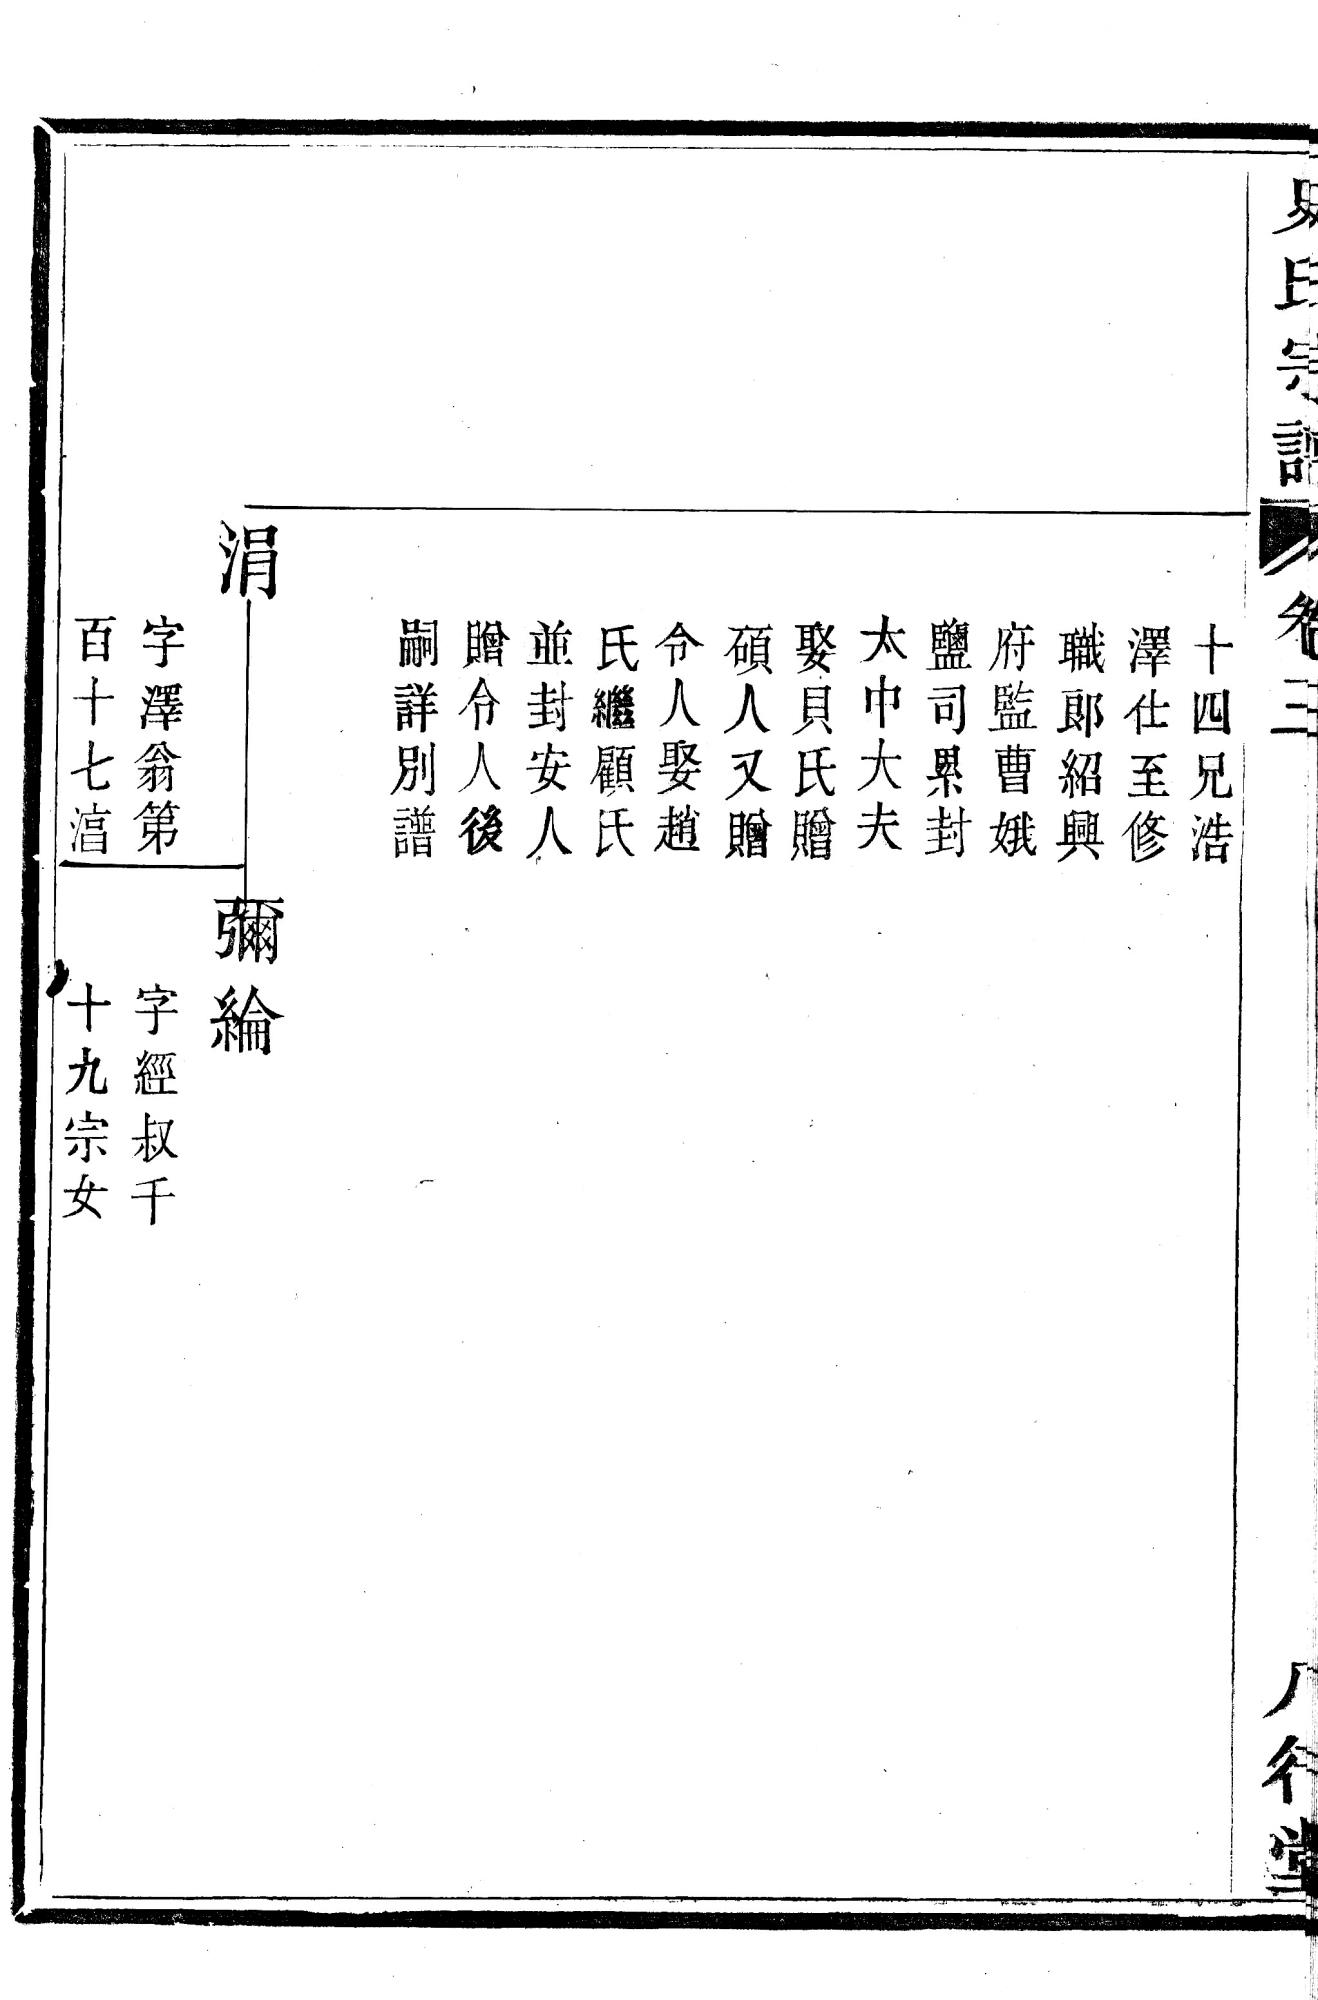 史氏宗譜 卷三 八行堂
十四兄浩
澤仕至修
職郎紹興
府監曹娥
鹽司累封
太中大夫
娶貝氏贈
碩人又贈
令人娶趙
氏繼顧氏
並封安人
贈令人後
嗣詳別譜
涓
字澤翁第
百十七湻
彌綸
字經叔千
十九宗女